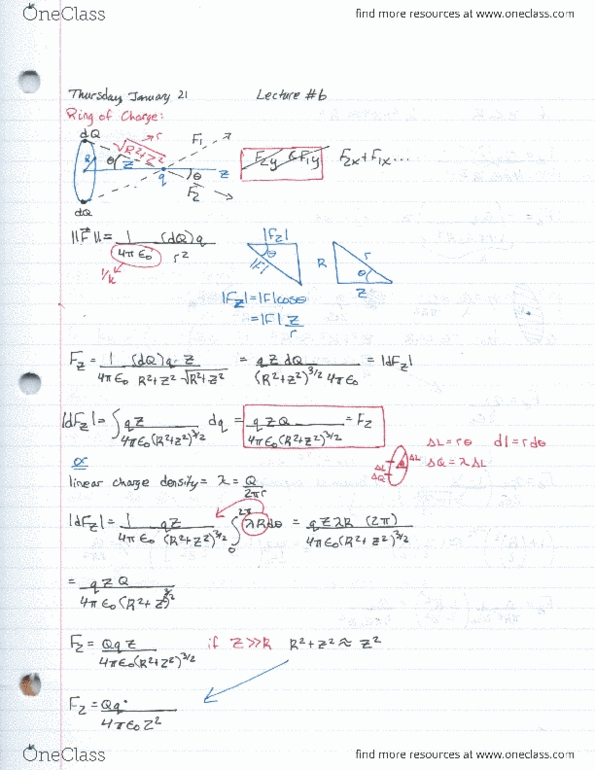 OneClass find more resources at www.oneclass.com
Thursday, January 21 Lecture #6
Ring of Charge:
dQ
√R²+Z² → r
F₁
R θ Z q θ z
F₂
dQ
F₂y & F₁y F₂x + F₁x ...
||F⃗|| = 1/(4πε₀) (dQ)q/r²
1/k
|F_z| θ |F|
R r θ z
|F_z| = |F|cosθ
= |F| z/r
F_z = 1/(4πε₀) (dQ)q·z/(R²+z² √R²+z²) = qzdQ/((R²+z²)^3/2 4πε₀) = |dF_z|
|dF_z| = ∫ qz/(4πε₀(R²+z²)^3/2) dq = qzQ/(4πε₀(R²+z²)^3/2) = F_z
ΔL = rθ dl = rdθ
ΔQ = λΔL
ΔL
ΔQ
or
linear charge density = λ = Q/(2πr)
|dF_z| = 1/(4πε₀) qz/(R²+z²)^3/2 ∫₀^2π λRdθ = qzλR (2π)/(4πε₀(R²+z²)^3/2)
= qzQ/(4πε₀(R²+z)^3/2)
F_z = Qqz/(4πε₀(R²+z²)^3/2) if z>>R R²+z² ≈ z²
F_z = Qq/(4πε₀z²)
OneClass find more resources at www.oneclass.com